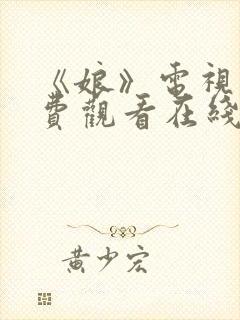 《娘》電視
費觀看在綫
黄少宏